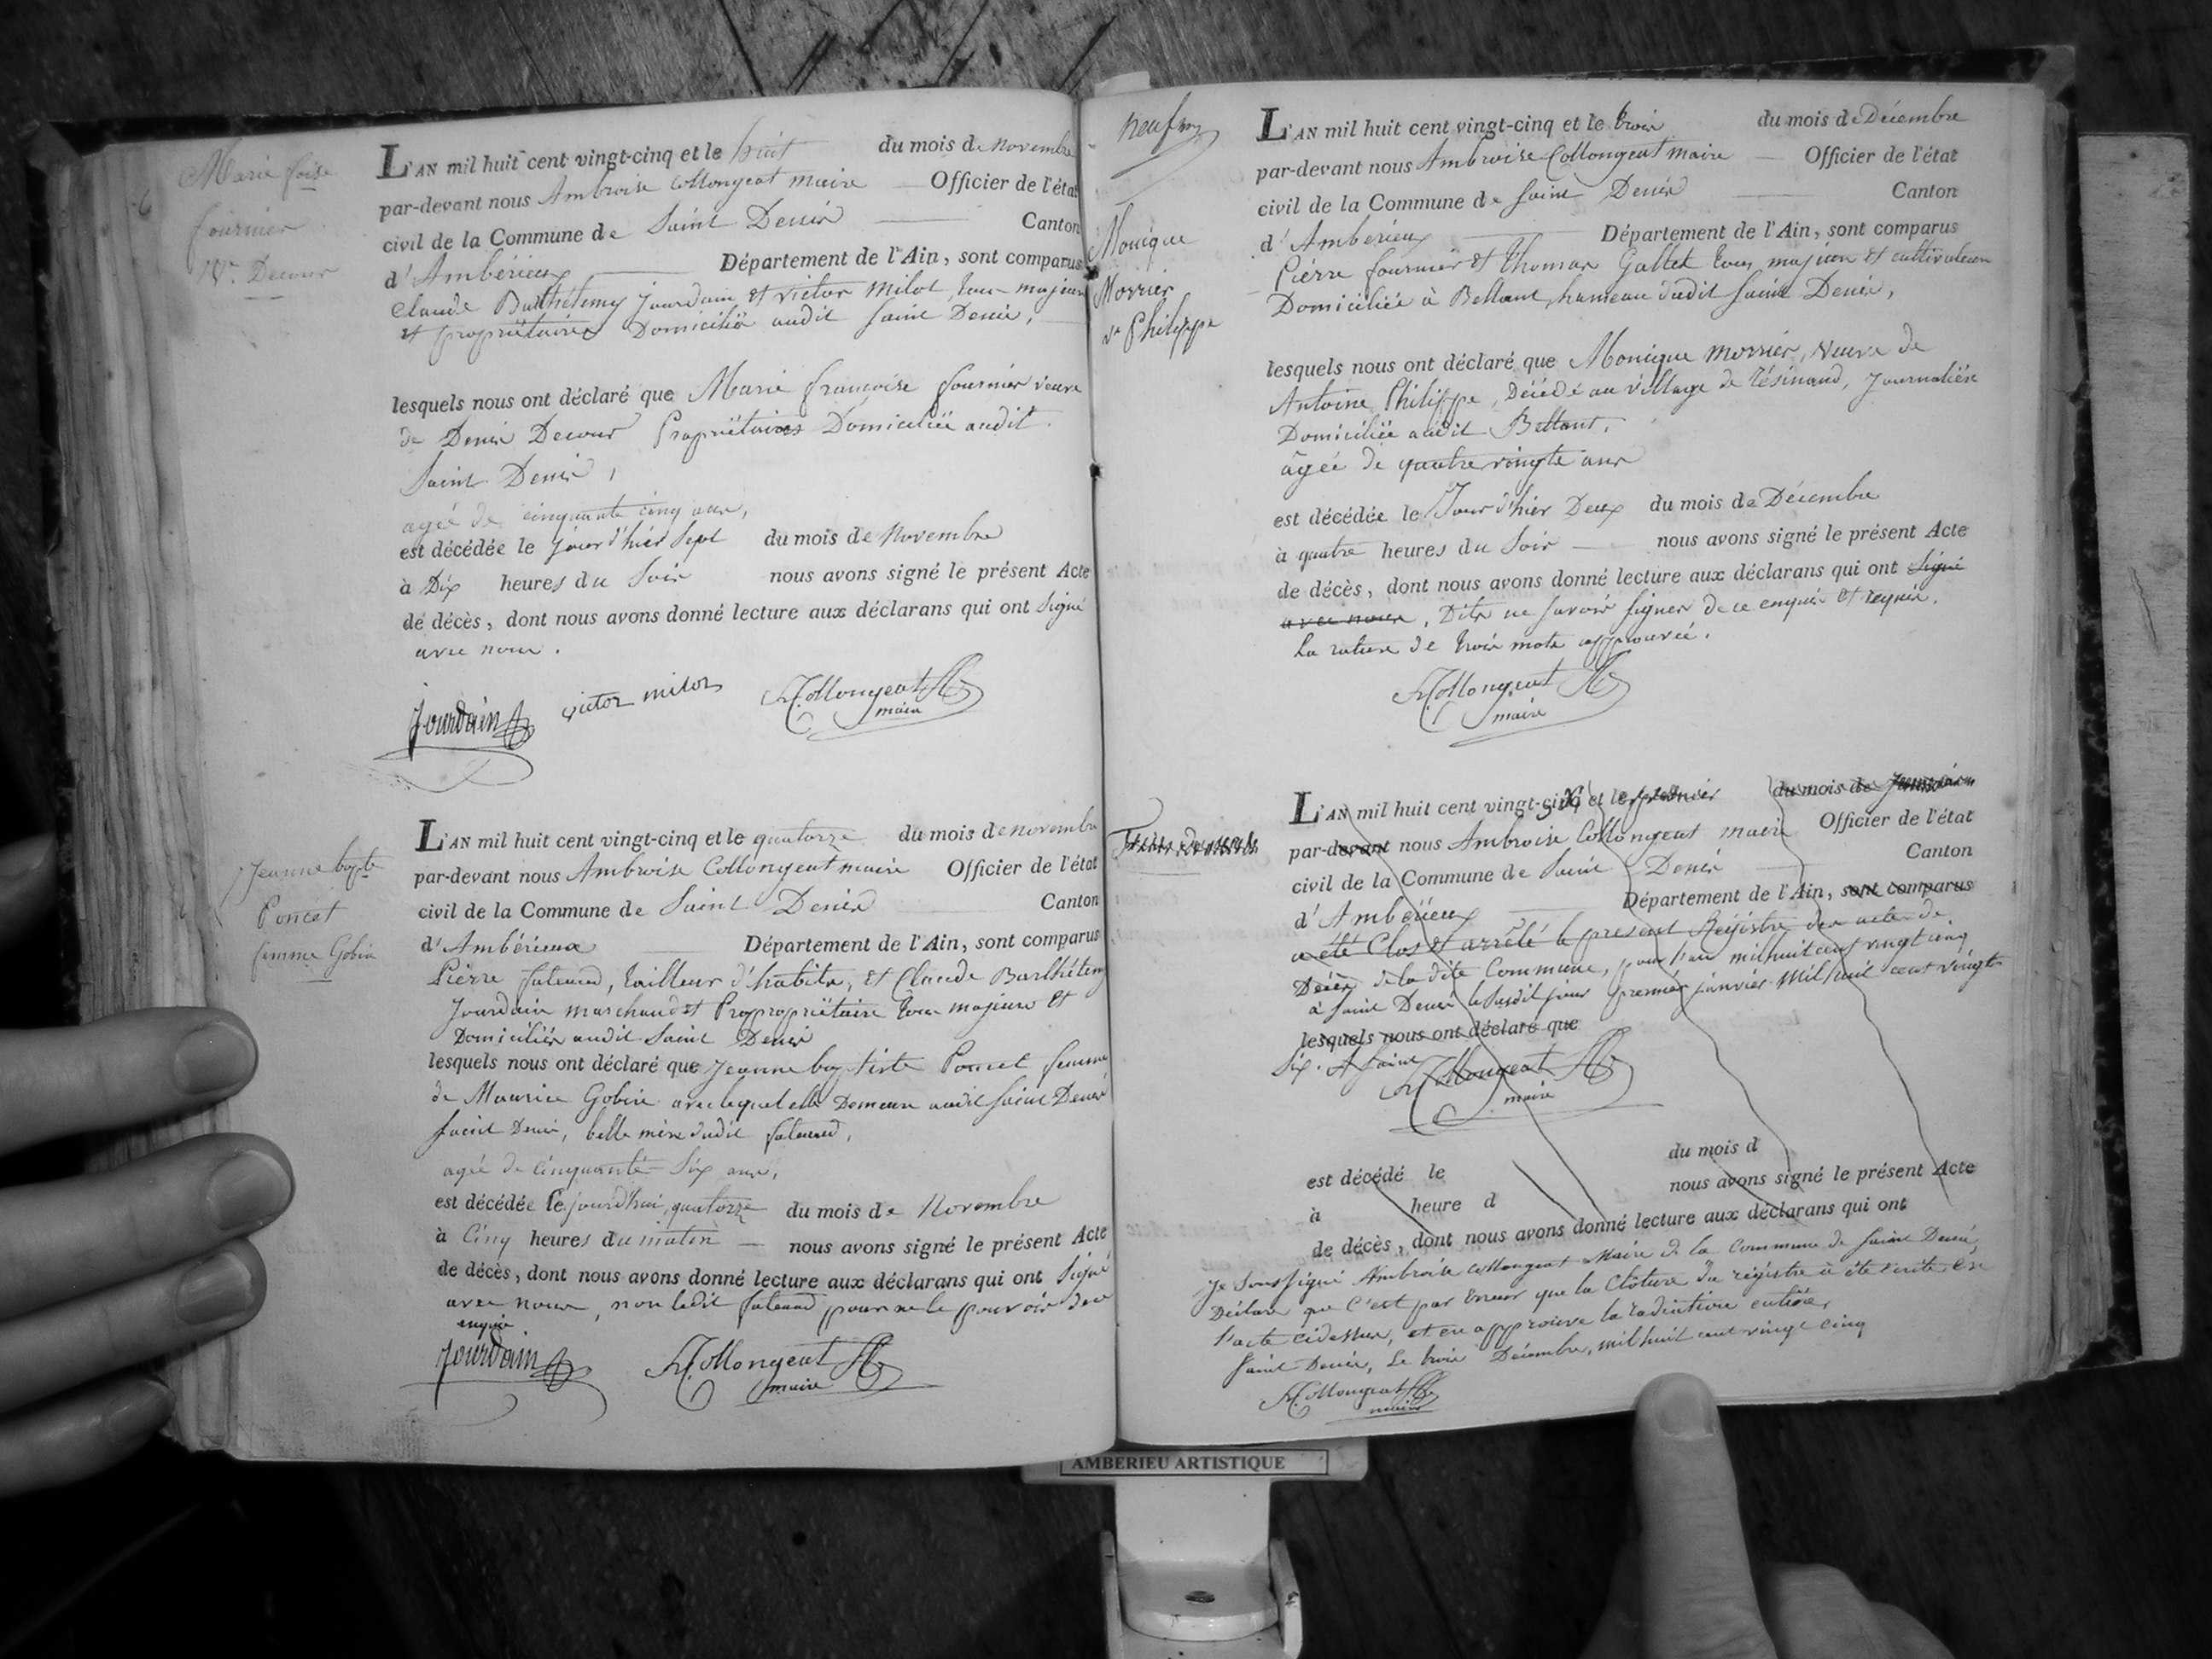 Marie foise
fournier
Ve. Decour
L'AN mil huit cent vingt-cinq et le huit du mois de novembre
par-devant nous Ambroise Collongeat maire Officier de l'état
civil de la Commune de Saint Denis Canton
d'Ambérieux Département de l'Ain, sont comparus
Claude Barthélemy Jourdain et victor milot, tous majeurs
et propriétaires Domiciliés audit Saint Denis,
lesquels nous ont déclaré que Marie françoise fournier veuve
de Denis Decour Propriétaires Domiciliée audit
Saint Denis,
agée de cinquante cinq ans,
est décédée le jour d'hier Sept du mois de Novembre
à Dix heures du Soir nous avons signé le présent Acte
de décès, dont nous avons donné lecture aux déclarans qui ont Signé
avec nous.
Jourdain victor milot Collongeat
maire
Jeanne bapte
Poncet
femme Gobin
L'AN mil huit cent vingt-cinq et le quatorze du mois de novembre
par-devant nous Ambroise Collongeat maire Officier de l'état
civil de la Commune de Saint Denis Canton
d'Ambérieux Département de l'Ain, sont comparus
Pierre tailleur d'habits, et Claude Barthélemy
Jourdain marchand et Propropriétaire tous majeurs et
Domiciliés audit Saint Denis
lesquels nous ont déclaré que Jeanne baptiste Poncet femme
de Maurice Gobin avec lequel elle Demeure audit Saint Denis
Saint Denis, belle mère dudit
agée de cinquante-Six ans,
est décédée le jourd'hui, quatorze du mois de Novembre
à Cinq heures du matin nous avons signé le présent Acte
de décès, dont nous avons donné lecture aux déclarans qui ont Signé
avec nous, non ledit pour ne le pouvoir de ce
enquis
Jourdain Collongeat
maire
neuf
Monique
Morrier
ve Philippe
L'AN mil huit cent vingt-cinq et le trois du mois de Décembre
par-devant nous Ambroise Collongeat maire Officier de l'état
civil de la Commune de Saint Denis Canton
d'Amberieux Département de l'Ain, sont comparus
Pierre fournier et thomas Gallet tous majeurs et cultivateurs
Domiciliés à Bettant, hameau dudit Saint Denis,
lesquels nous ont déclaré que Monique Morrier, veuve de
Antoine Philippe, Décédé au village de Résinand, Journalière
Domiciliée audit Bettant,
âgée de quatre vingts ans
est décédée le Jour d'hier Deux du mois de Décembre
à quatre heures du Soir nous avons signé le présent Acte
de décès, dont nous avons donné lecture aux déclarans qui ont Signé
avec nous, Dits ne savoir signer de ce enquis et requis.
La rature de trois mots approuvée.
Collongeat
maire
L'AN mil huit cent vingt-six et le premier du mois de Janvier
par-devant nous Ambroise Collongeat maire Officier de l'état
civil de la Commune de Saint Denis Canton
d'Ambérieux Département de l'Ain, sont comparus
a été Clos et arrêté le présent Régistre des actes de
Décès de la dite Commune, pour l'an mil huit cent vingt cinq
à Saint Denis le susdit jour premier janvier mil huit cent vingt
lesquels nous ont déclaré que
Six. A Saint
Collongeat
maire
est décédé le du mois d
à heure d nous avons signé le présent Acte
de décès, dont nous avons donné lecture aux déclarans qui ont
Je Soussigné Ambroise Collongeat Maire de la Commune de Saint Denis,
Déclare que C'est par Erreur que la Clôture du régistre a été écrite en
l'acte cidessus, et en approuve la radiation entière,
Saint Denis, Le trois Décembre, mil huit cent vingt cinq
Collongeat
maire
AMBERIEU ARTISTIQUE